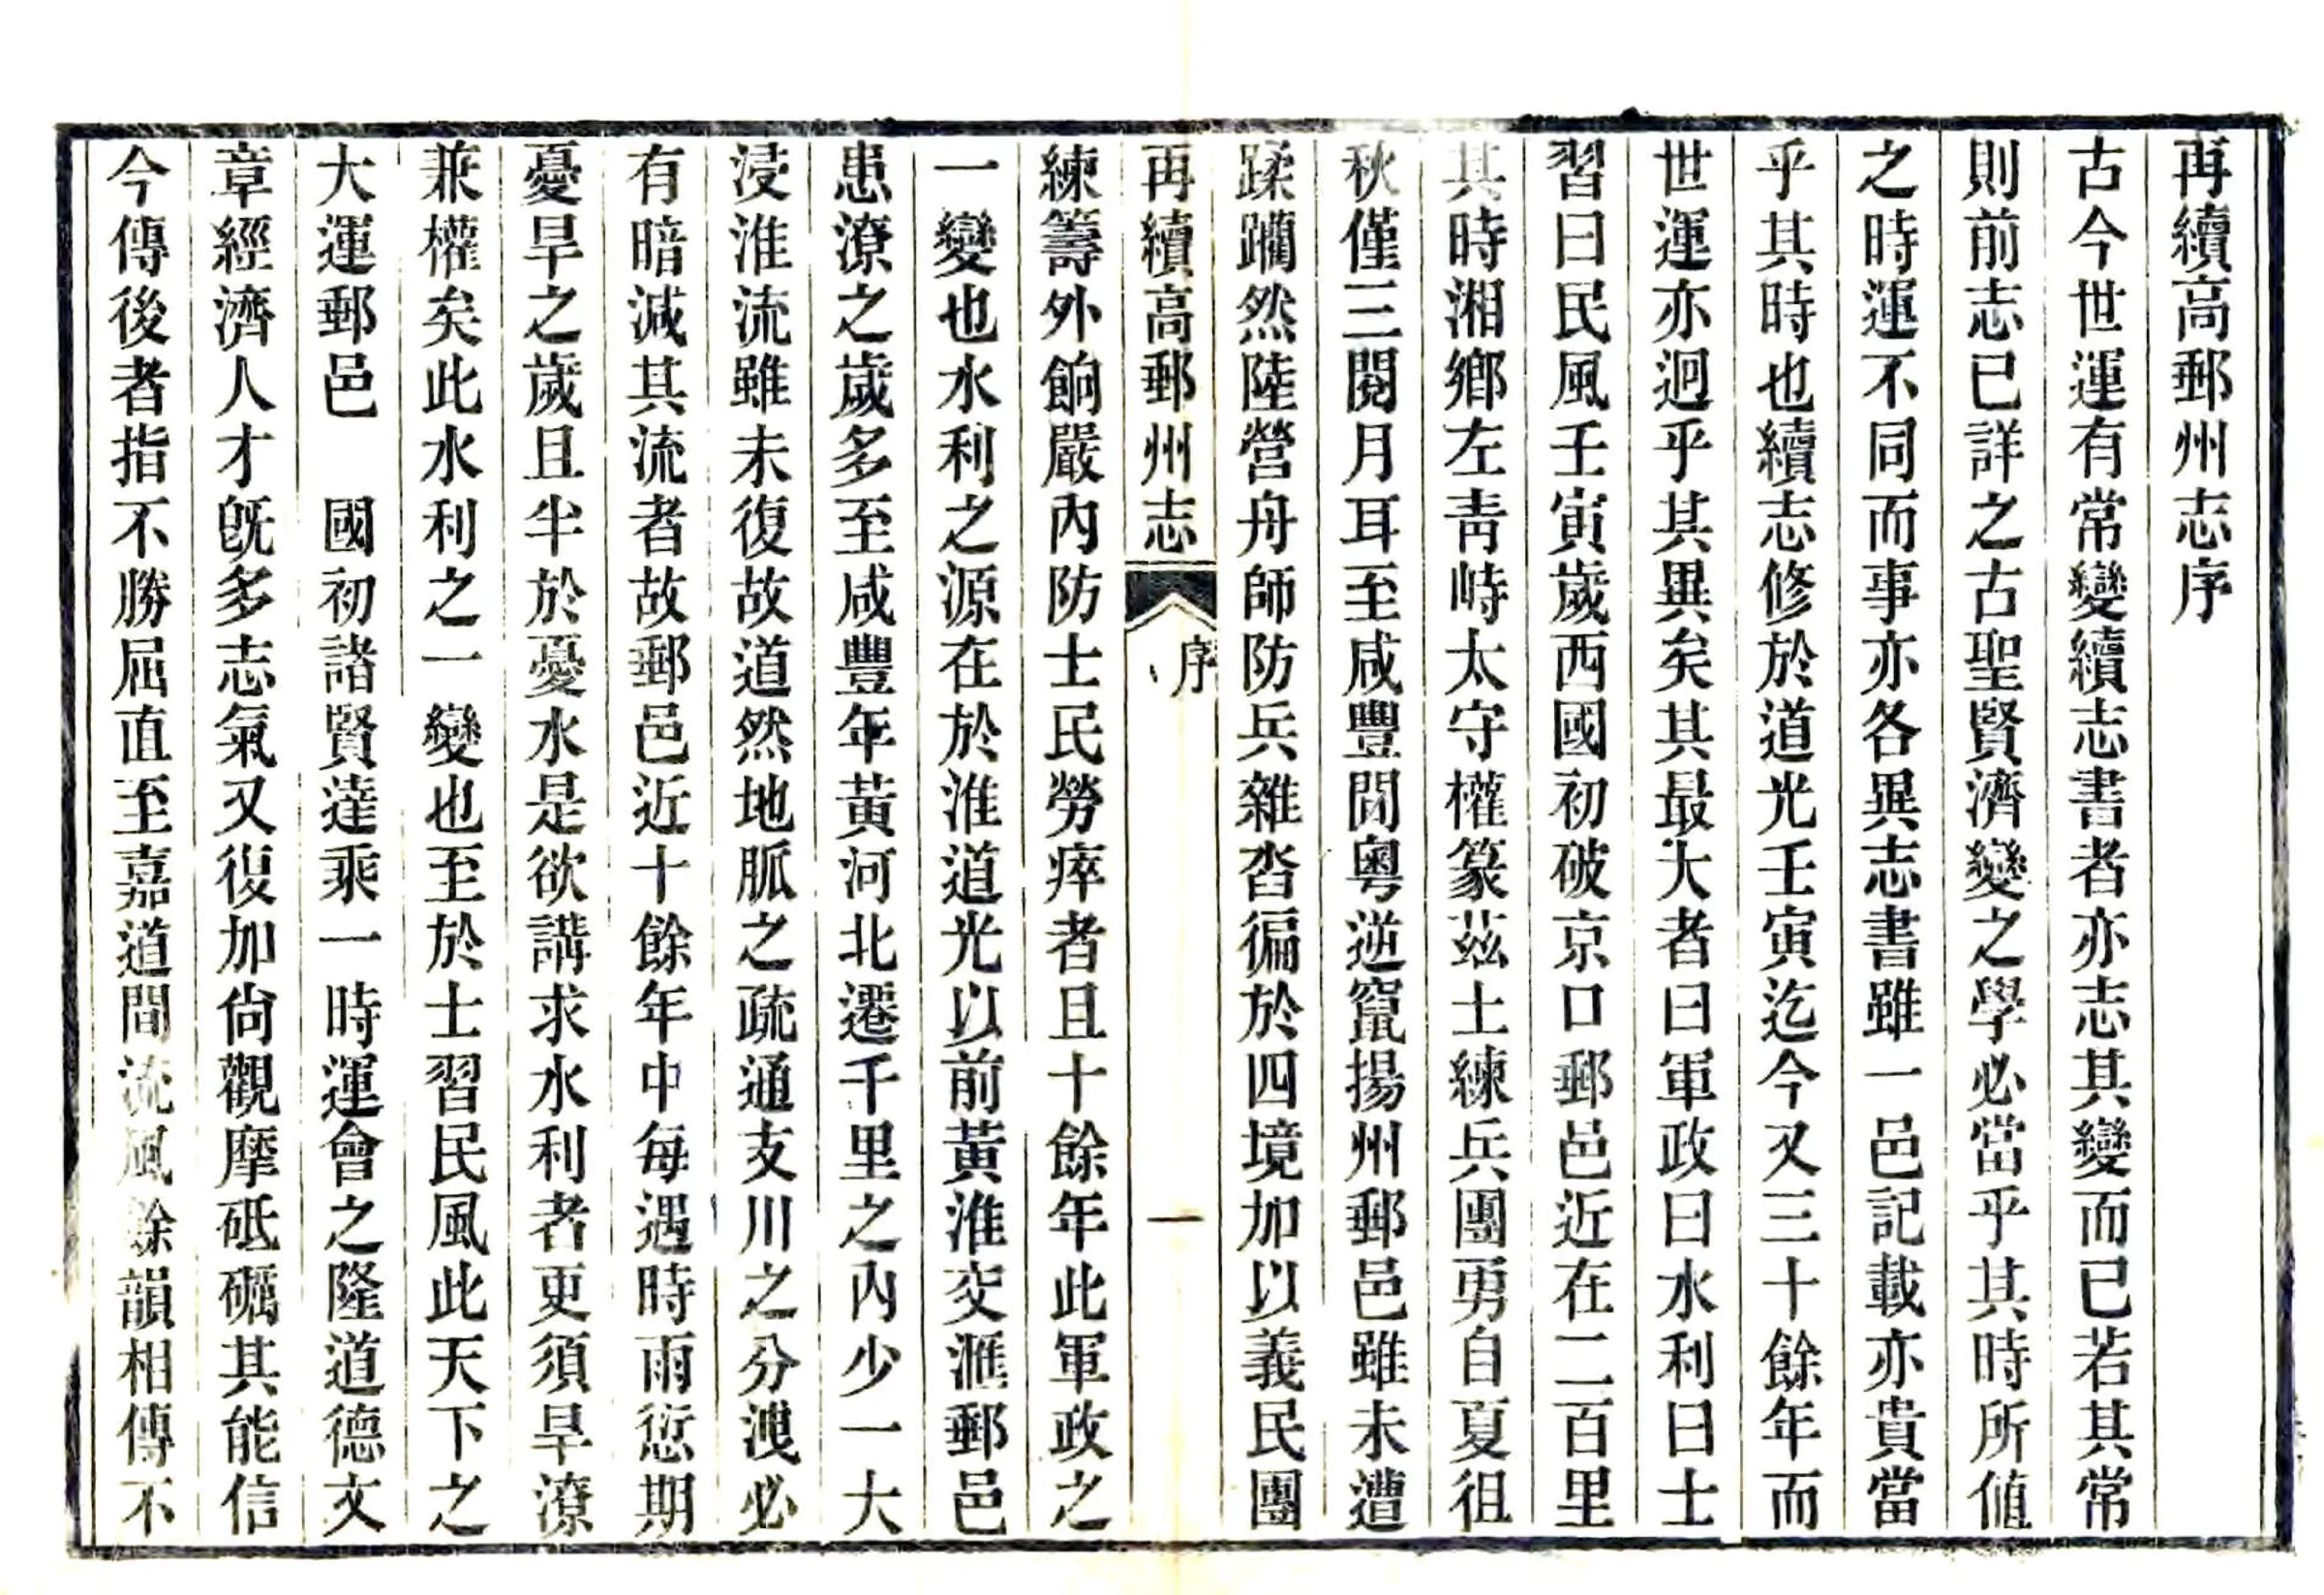 再續高郵州志序
古今世運有常變續志書者亦志其變而已若其常
則前志已詳之古聖賢濟變之學必當乎其時所值
之時運不同而事亦各異志書雖一邑記載亦貴當
乎其時也續志修於道光壬寅迄今又三十餘年而
世運亦迥乎其異矣其最大者曰軍政曰水利曰士
習曰民風壬寅歲西國初破京口郵邑近在二百里
其時湘鄉左青峙太守權篆茲土練兵團勇自夏徂
秋僅三閱月耳至咸豐間粵逆竄揚州郵邑雖未遭
蹂躪然陸營舟師防兵雜沓徧於四境加以義民團
再續高郵州志
序
一
練籌外餉嚴內防士民勞瘁者且十餘年此軍政之
一變也水利之源在於淮道光以前黃淮交滙郵邑
患潦之歲多至咸豐年黃河北遷千里之內少一大
浸淮流雖未復故道然地脈之疏通支川之分洩必
有暗減其流者故郵邑近十餘年中每遇時雨愆期
憂旱之歲且半於憂水是欲講求水利者更須旱潦
兼權矣此水利之一變也至於士習民風此天下之
大運郵邑　國初諸賢達乘一時運會之隆道德文
章經濟人才旣多志氣又復加尙觀摩砥礪其能信
今傳後者指不勝屈直至嘉道間流風餘韻相傳不